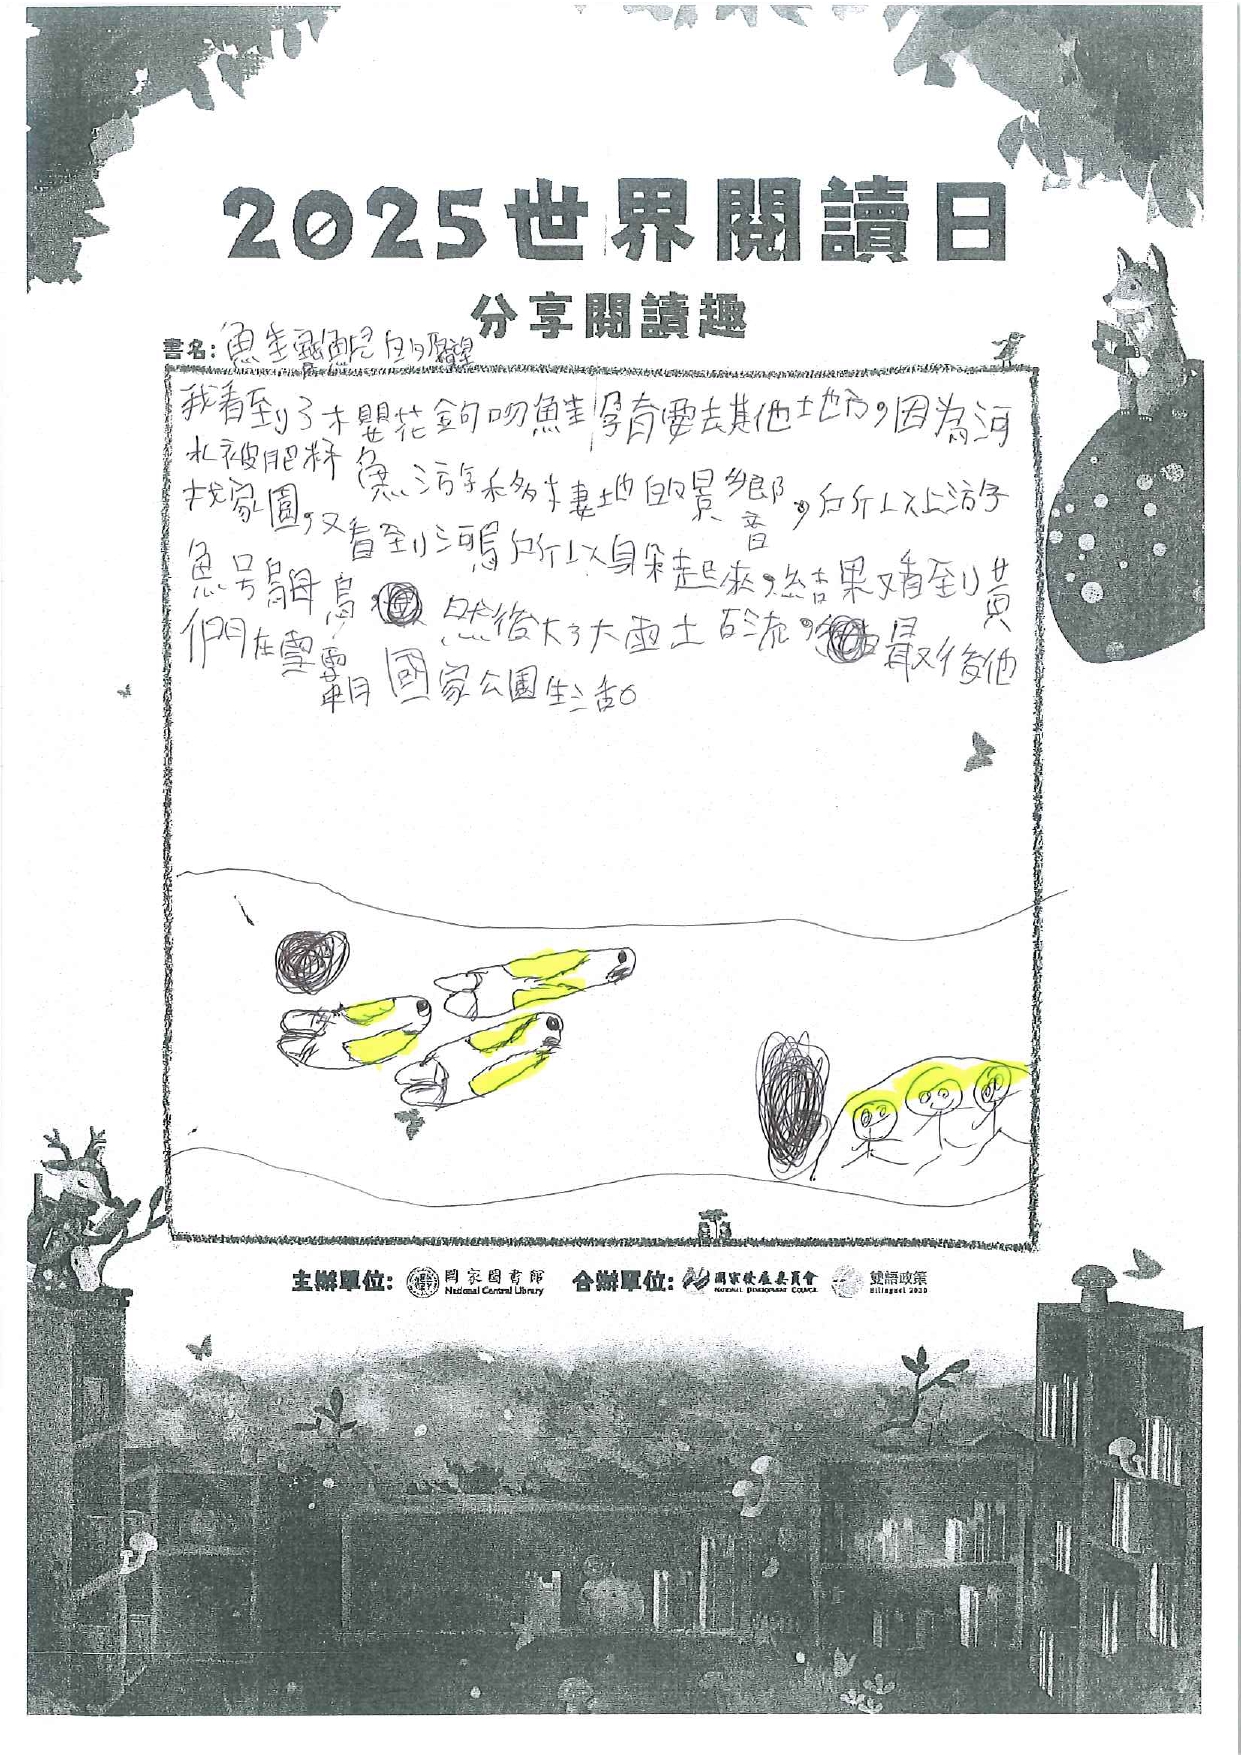 2025世界閱讀日
分享閱讀趣
書名：魚鮭寶魚兒的願望
我看到了木櫻花鉤吻魚鮭孕育要去其他土地方，因為河
水被肥料魚游字禾多棲地的景鄉音，所以上游子
找家園，又看到河烏所以身朵起來，結果又看到黃
魚号鴞鳥，然後大了大雨土砂流，最後他
們在雪霸國家公園生活。
主辦單位: 國家圖書館 National Central Library 合辦單位: 國家發展委員會 NATIONAL DEVELOPMENT COUNCIL 雙語政策 Bilingual 2030